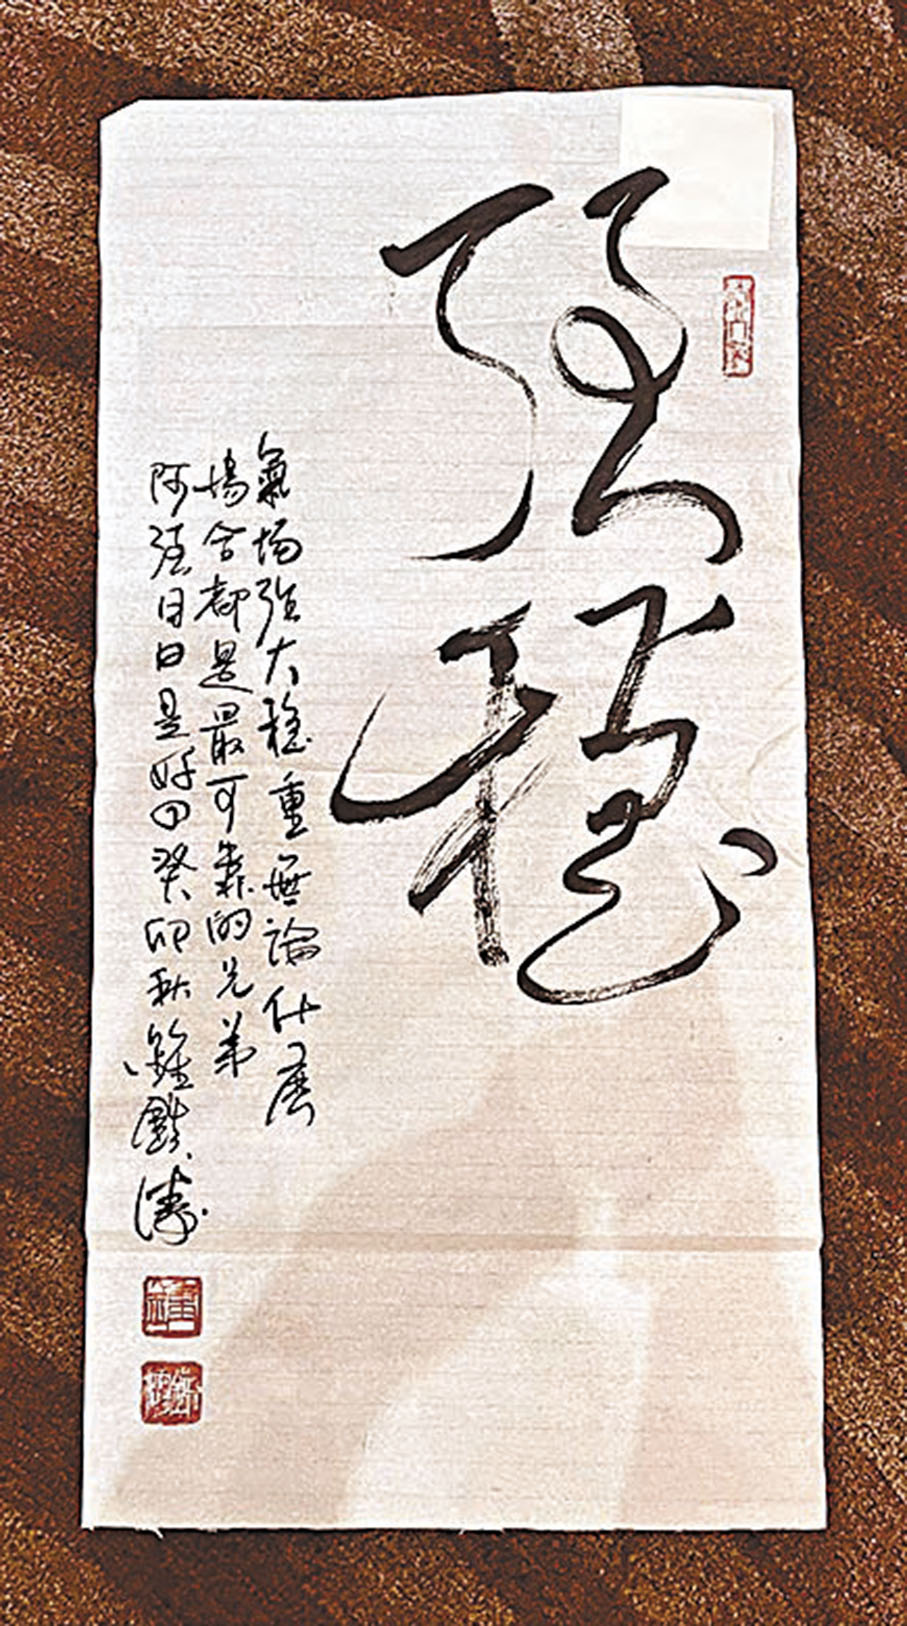 强穩
氣场强大穩重無論什麼
場合都是最可靠的兄弟
阿强日日是好日癸卯秋鍾鎮濤